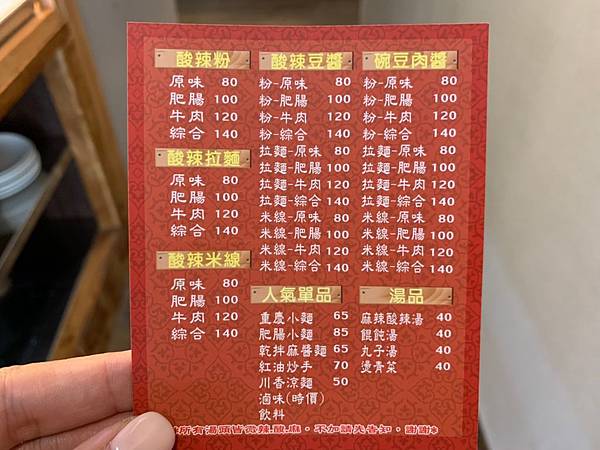 酸辣粉
原味 80
肥腸 100
牛肉 120
綜合 140
酸辣拉麵
原味 80
肥腸 100
牛肉 120
綜合 140
酸辣米線
原味 80
肥腸 100
牛肉 120
綜合 140
酸辣豆醬
粉-原味 80
粉-肥腸 100
粉-牛肉 120
粉-綜合 140
拉麵-原味 80
拉麵-肥腸 100
拉麵-牛肉 120
拉麵-綜合 140
米線-原味 80
米線-肥腸 100
米線-牛肉 120
米線-綜合 140
碗豆肉醬
粉-原味 80
粉-肥腸 100
粉-牛肉 120
粉-綜合 140
拉麵-原味 80
拉麵-肥腸 100
拉麵-牛肉 120
拉麵-綜合 140
米線-原味 80
米線-肥腸 100
米線-牛肉 120
米線-綜合 140
人氣單品
重慶小麵 65
肥腸小麵 85
乾拌麻醬麵 65
紅油炒手 70
川香涼麵 50
滷味(時價)
飲料
湯品
麻辣酸辣湯 40
餛飩湯 40
丸子湯 40
燙青菜 40
所有湯頭皆微辣.酸.麻，不加請先告知，謝謝*